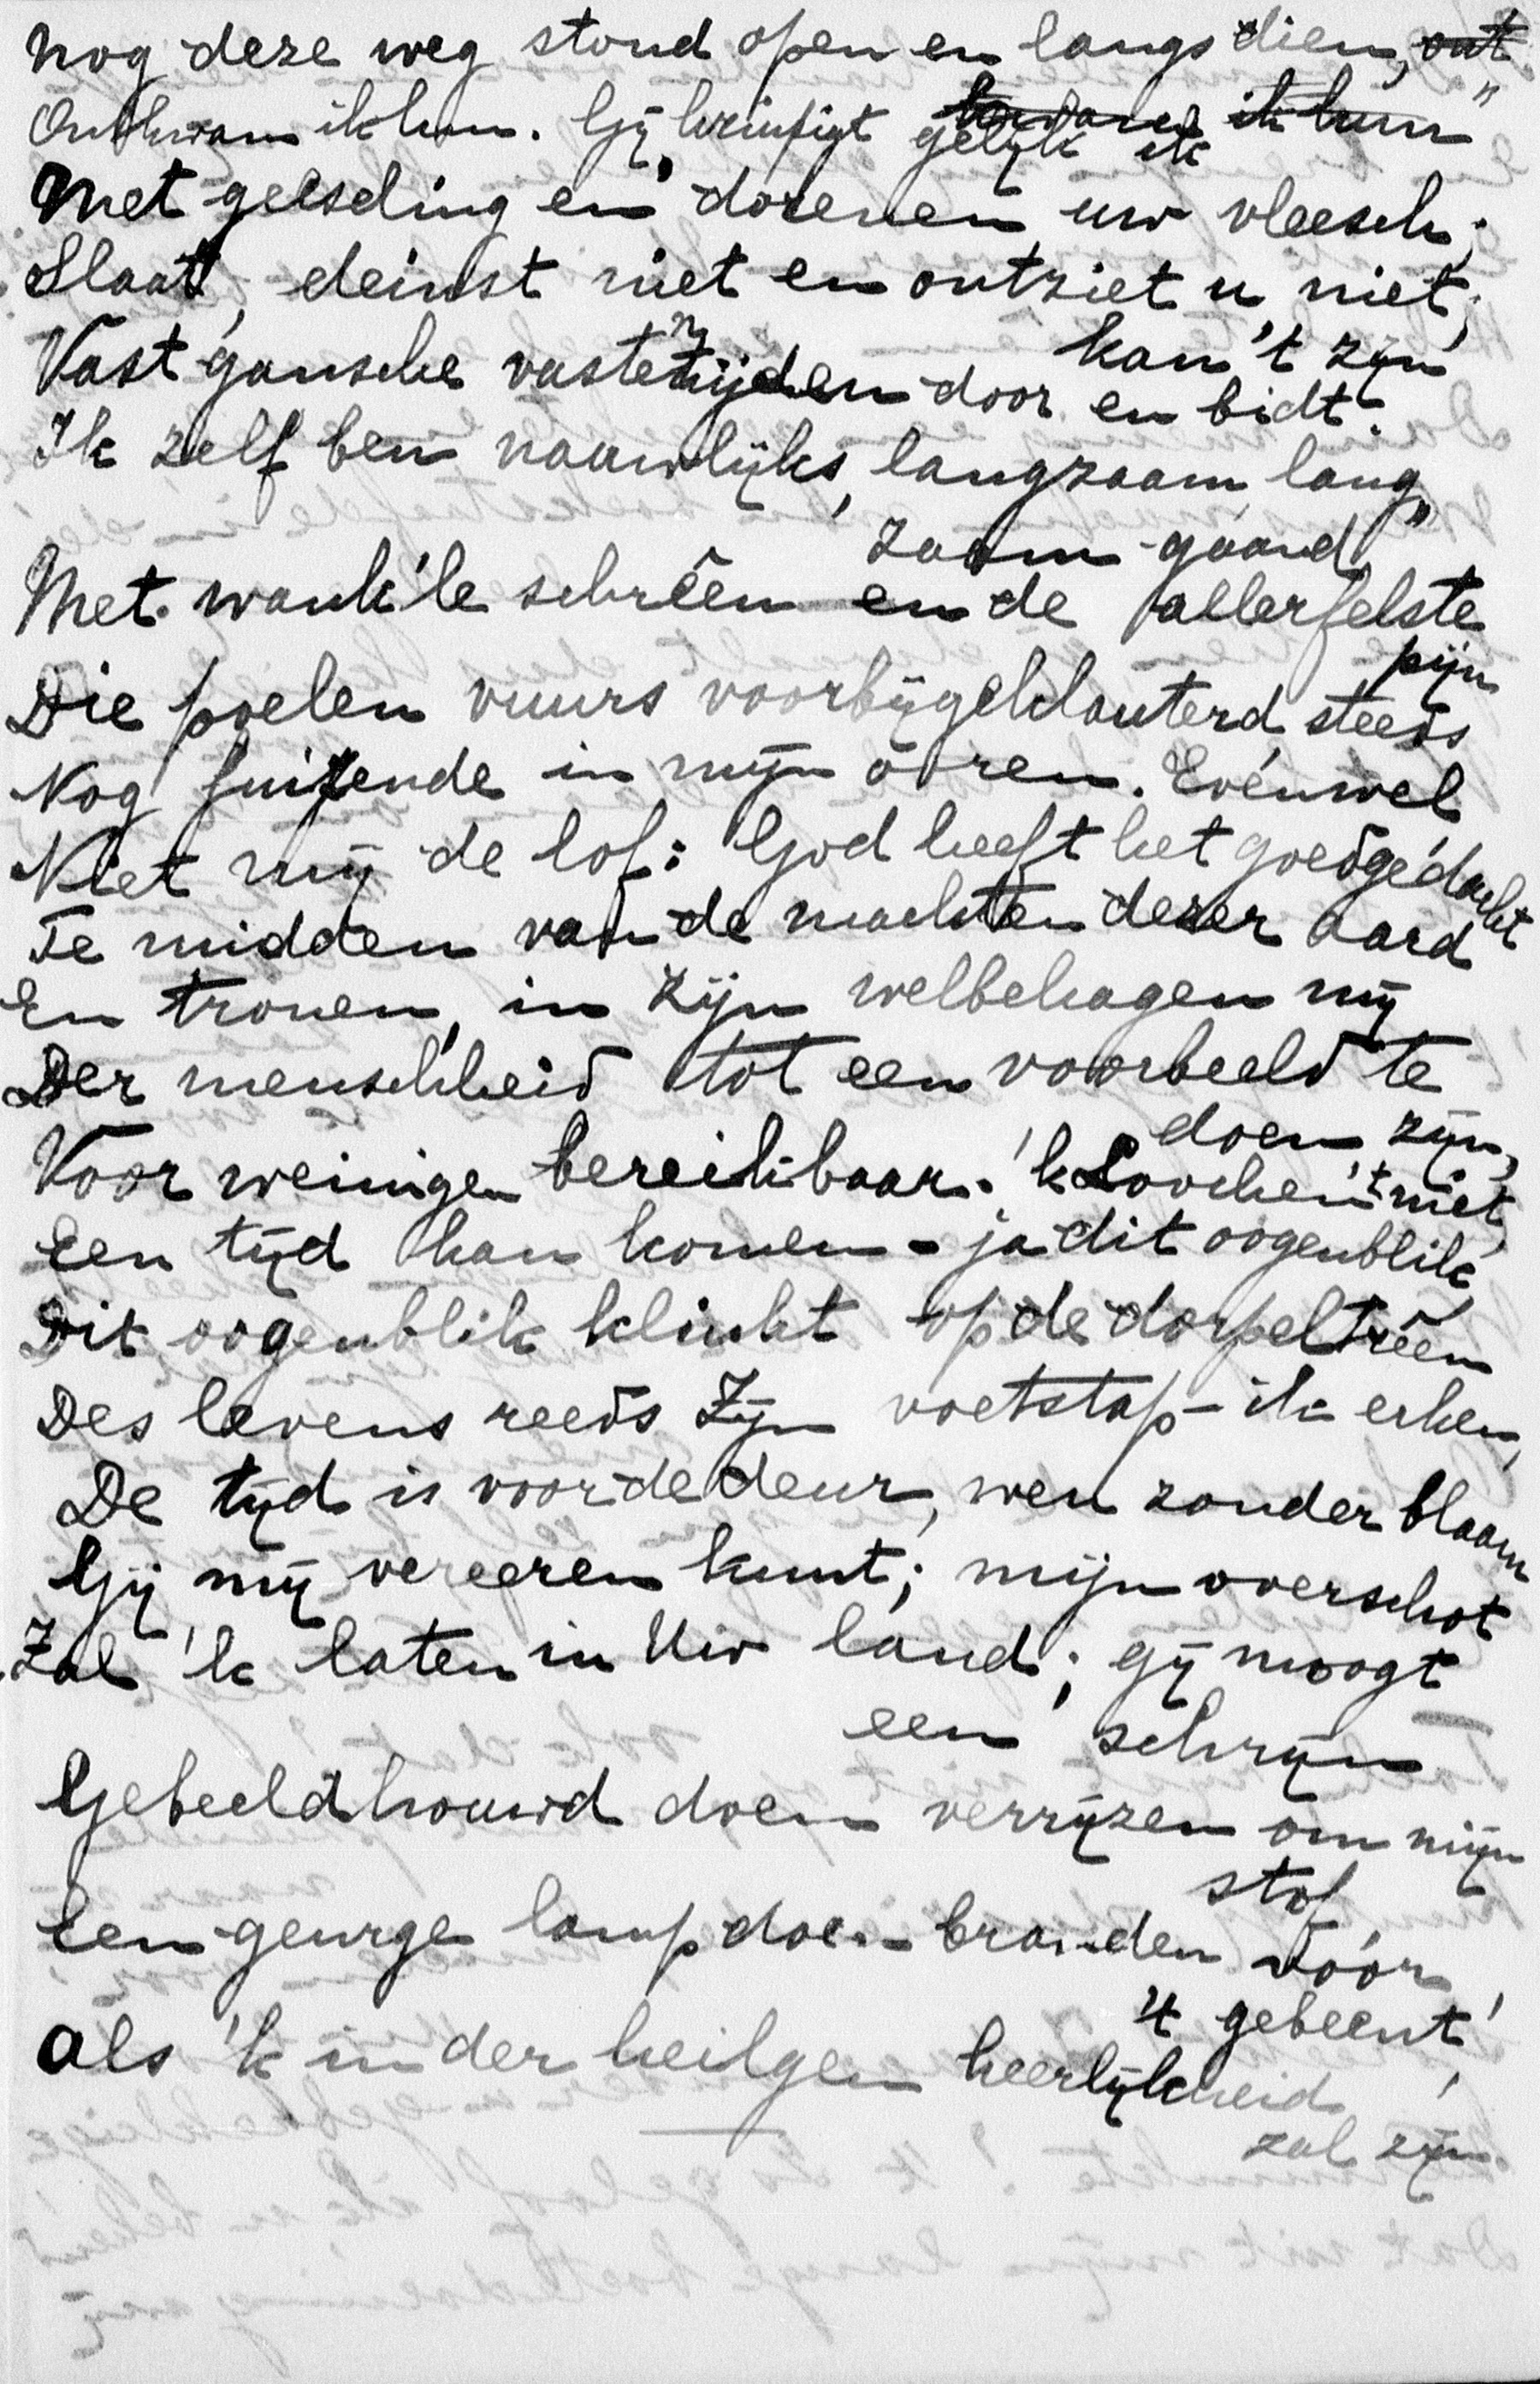 nog deze weg stond open en langs dien, ont"
Ontkwam ik hun. Gij kruisigt gelijk ik
kwam ik hun
Met geeseling en dorenen uw vleesch;
Slaat, deinst niet en ontziet u niet;
kan 't zijn
Vast gansche vastentijden door en bidt.
Ik zelf ben nauwlijks, langzaam, lang"
zaam gaand,
Met wank'le schrêen en de allerfelste
pijn
Die poelen vuurs voorbijgeklauterd steeds
Nog suizende in mijn ooren. Evenwel
Niet mij de lof: God heeft het goedgedacht
Te midden van de machten dezer aard
En tronen, in Zijn welbehagen mij
Der menschheid tot een voorbeeld te
doen zijn,
Voor weinigen bereikbaar. 'k Loochen 't niet,
Een tijd kan komen - ja dit oogenblik,
Dit oogenblik klinkt op de dorpeltrêen
Des levens reeds Zijn voetstap - ik erken,
De tijd is voor de deur, wen zonder blaam
Gij mij vereeren kunt; mijn overschot
Zal 'k laten in Uw land; gij moogt
een schrijn
Gebeeldhouwd doen verrijzen om mijn
stof,
Een geurge lamp doen branden vóór
't gebeent',
Als 'k in der heilgen heerlijkheid
zal zijn.